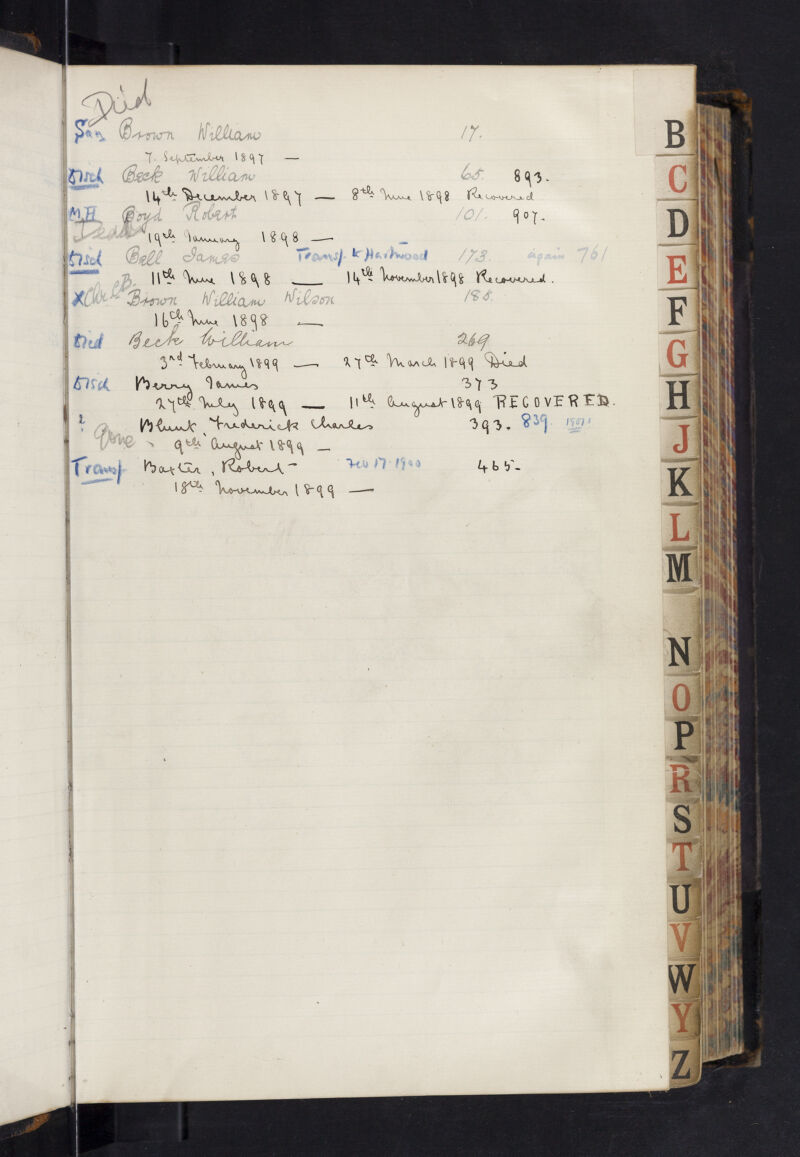 Died
San Brown William 17.
7. September 1897 —
Disch Beck William 65. 893.
14th December 1897 — 8th June 1898 Recovered
M.H Boyd Robert 101. 907.
Dead 19th January 1898 —
Disch Bell James Transf. to Hartwood 173. again 761
11th June 1898 — 14th November 1898 Recovered.
x B. Brown William Wilson 185.
16th June 1898 —
Died Beck William 269
3rd February 1899 — 27th March 1899 Died
Disch Berry James 373
27th July 1899 — 11th August 1899 RECOVERED.
? Blunt, Frederick Charles 393. 839
Gone 9th August 1899 —
Transf Baxter, Robert Feb 17. 1900 465.
18th November 1899 —
B
C
D
E
F
G
H
J
K
L
M
N
O
P
R
S
T
U
V
W
Y
Z